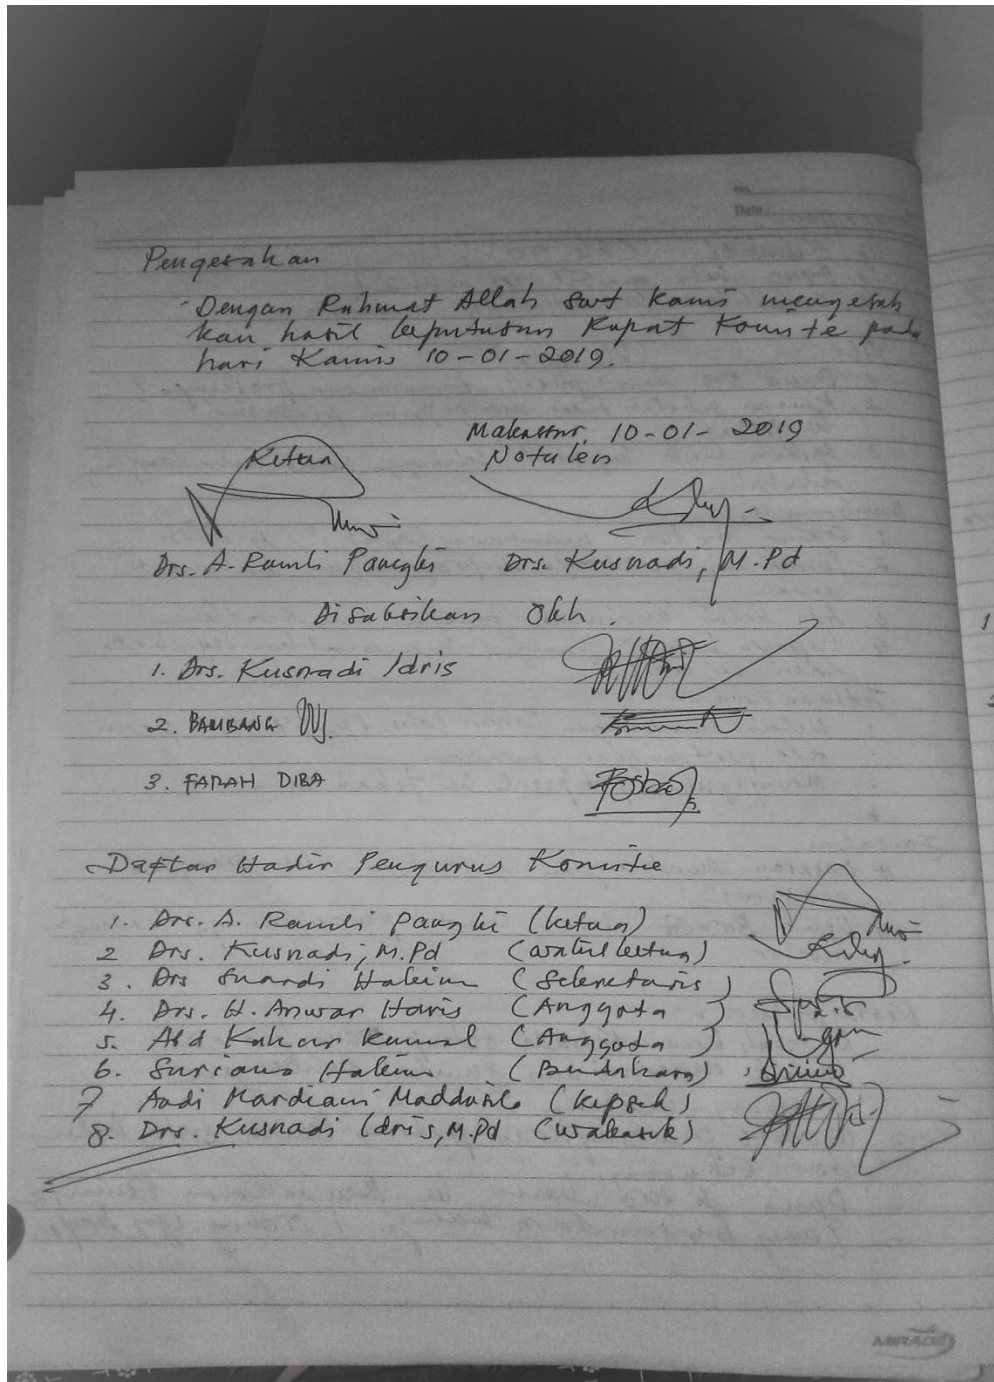 No.
Date
Pengesahan
- Dengan Rahmat Allah swt kami mengesah
kan hasil keputusan Rapat Komite pada
hari Kamis 10-01-2019.
Makassar, 10-01-2019
Ketua Notulen
Drs. A. Ramli Pangki Drs. Kusnadi, M.Pd
Disaksikan Oleh.
1. Drs. Kusnadi Idris
2. BAMBANG
3. FARAH DIBA
Daftar Hadir Pengurus Komite
1. Drs. A. Ramli Pangki (Ketua)
2 Drs. Kusnadi, M.Pd (Wakil Ketua)
3. Drs Suardi Hakim (Sekretaris)
4. Drs. H. Anwar Haris (Anggota)
5. Abd Kahar Kamal (Anggota)
6. Suriana Hakim (Bendahara)
7 Andi Mardiani (Kepsek)
8. Drs. Kusnadi Idris, M.Pd
MIRAGE